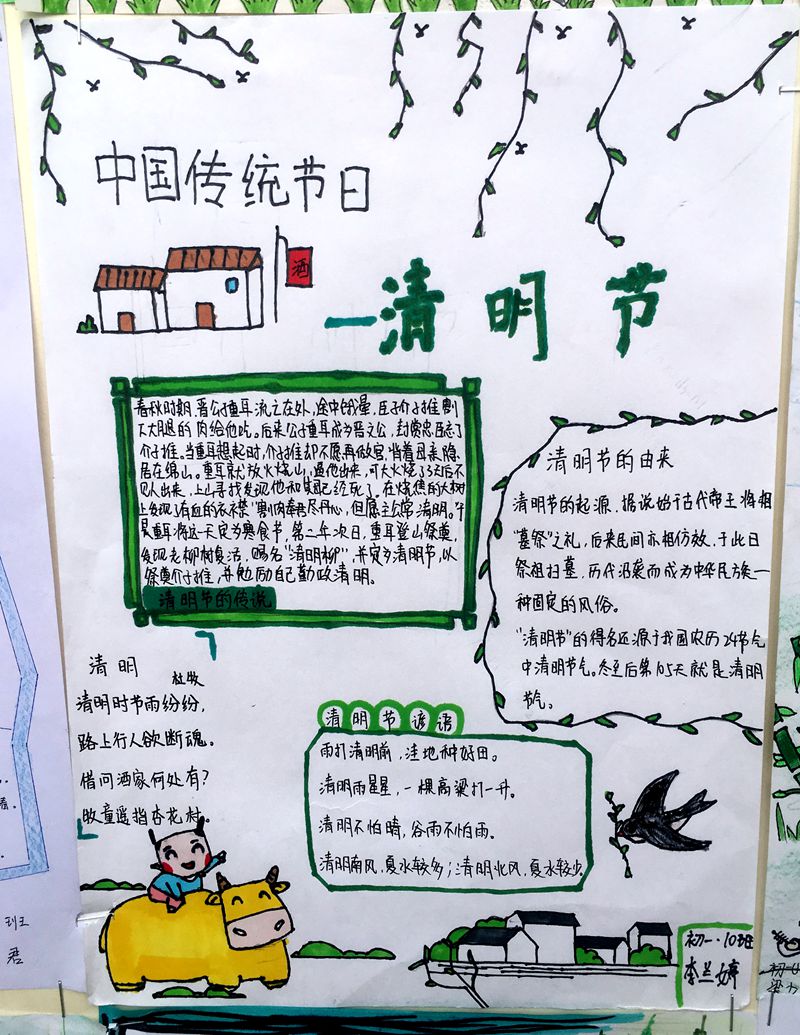 中国传统节日
酒
—清明节
春秋时期,晋公子重耳流亡在外,途中饿晕,臣子介子推割
下大腿的肉给他吃。后来公子重耳成为晋文公,封赏忠臣忘了
介子推。当重耳想起时,介子推却不愿再做官,背着母亲隐
居在绵山。重耳就放火烧山,逼他出来,可大火烧了3天后不
见人出来,上山寻找发现他和母已经死了。在烧焦的大树
上发现了有血的衣襟"割肉奉君尽丹心,但愿主公常清明。"于
是重耳将这一天定为寒食节,第二年次日,重耳登山祭奠,
发现老柳树复活,赐名"清明柳",并定为清明节,以
祭奠介子推,并勉励自己勤政清明。
清明节的传说
清明节的由来
清明节的起源,据说始于古代帝王将相
"墓祭"之礼,后来民间亦相仿效,于此日
祭祖扫墓,历代沿袭而成为中华民族一
种固定的风俗。
"清明节"的得名还源于我国农历24节气
中清明节气。冬至后第105天就是清明
节气。
清明
杜牧
清明时节雨纷纷,
路上行人欲断魂。
借问酒家何处有?
牧童遥指杏花村。
清明节谚语
雨打清明前,洼地种好田。
清明雨星星,一棵高粱打一升。
清明不怕晴,谷雨不怕雨。
清明南风,夏水较多;清明北风,夏水较少
初一·10班
李兰婷
班
君